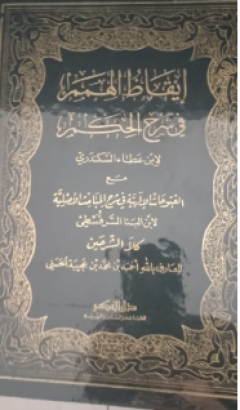 إيقاظ الهمم
في شرح الحكم
لابن عطاء السكندري
مع
الفتوحات الإلهية في شرح المباحث الأصلية
لابن البنا السرقسطي
كلا الشرحين
للعارف بالله أحمد بن محمد بن عجيبة الحسني
دار الفكر